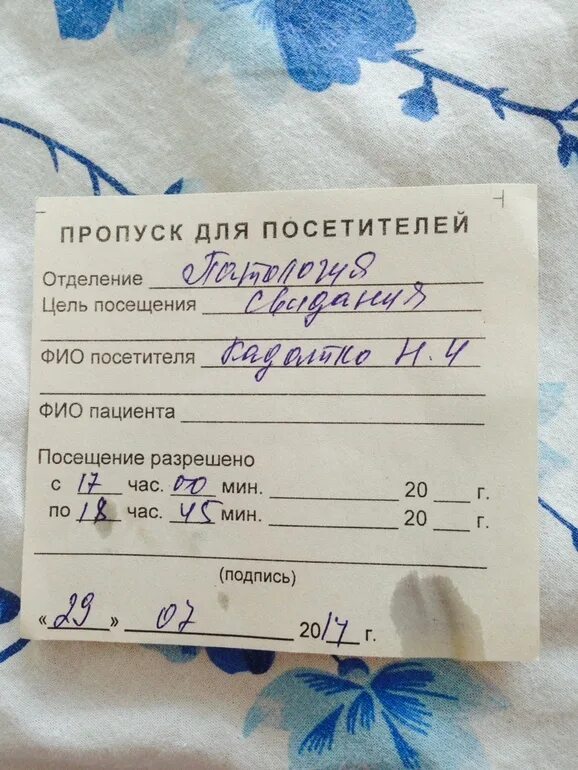 ПРОПУСК ДЛЯ ПОСЕТИТЕЛЕЙ
Отделение Патология
Цель посещения свидания
ФИО посетителя Кадолтко Н. Ч
ФИО пациента
Посещение разрешено
с 17 час. 00 мин. 20 г.
по 18 час. 45 мин. 20 г.
(подпись)
«29» 07 2017 г.